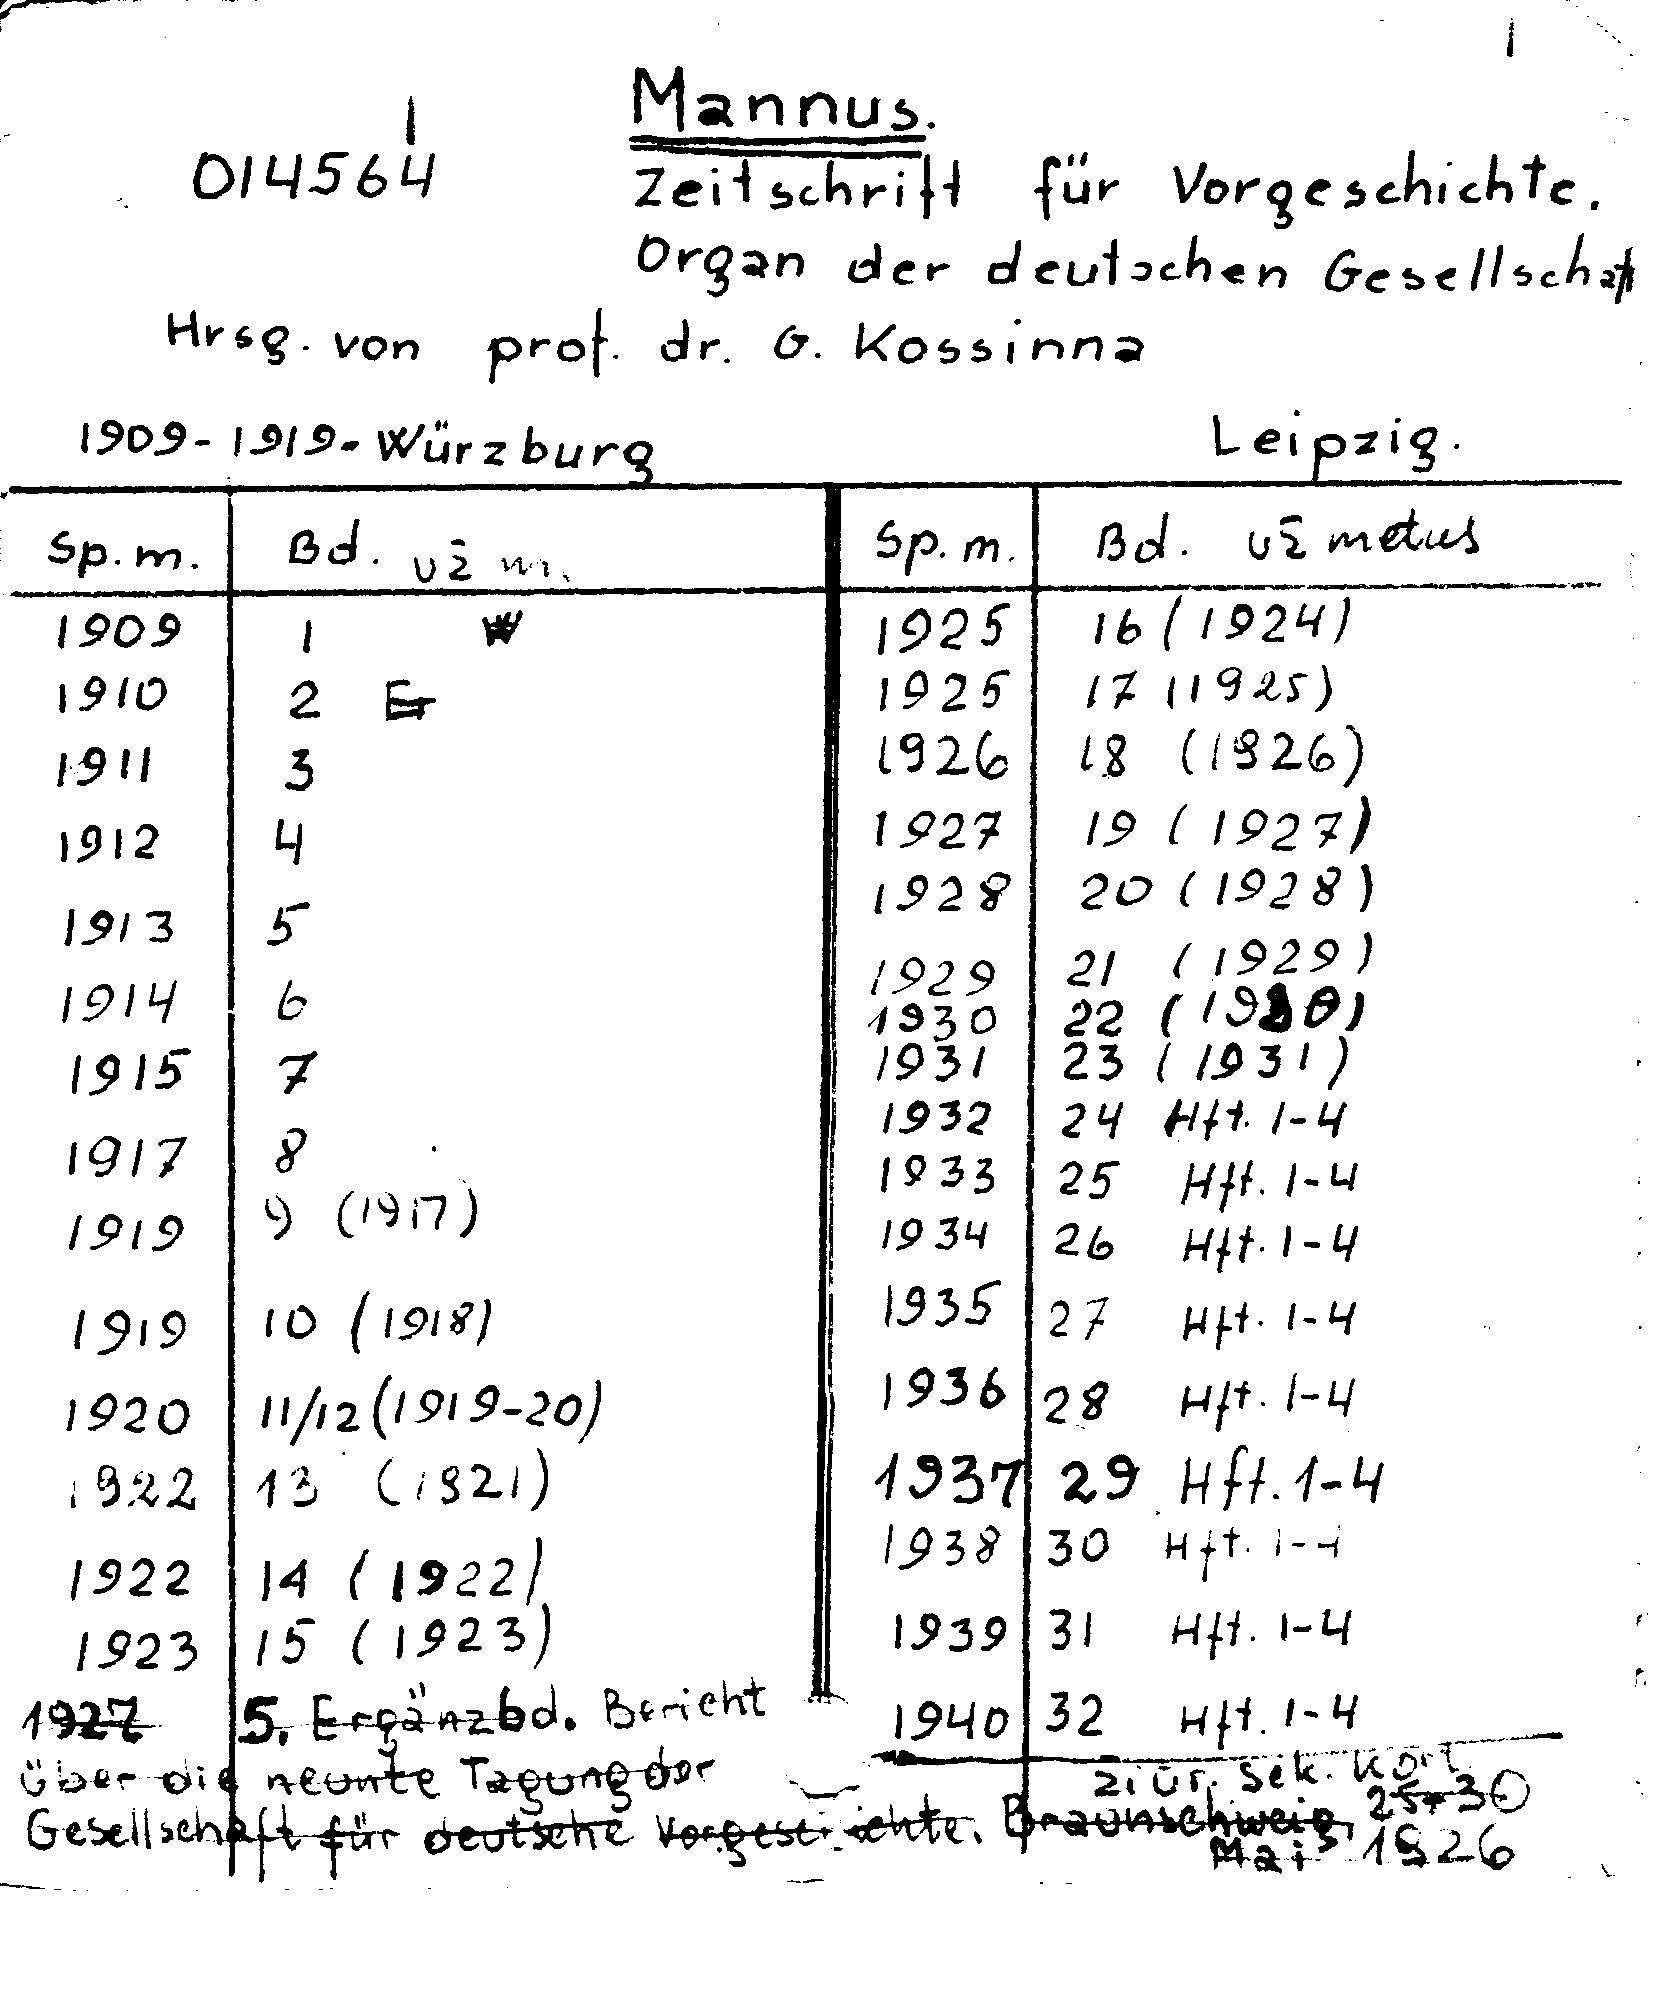 Mannus.
014564
Zeitschrift für Vorgeschichte.
Organ der deutschen Gesellschaft
Hrsg. von prof. dr. G. Kossinna
1909-1919- Würzburg
Leipzig.
Sp. m. Bd. už m.
1909 1
1910 2
1911 3
1912 4
1913 5
1914 6
1915 7
1917 8
1919 9 (1917)
1919 10 (1918)
1920 11/12 (1919-20)
1922 13 (1921)
1922 14 (1922)
1923 15 (1923)
Sp. m. Bd. už metus
1925 16 (1924)
1925 17 (1925)
1926 18 (1926)
1927 19 (1927)
1928 20 (1928)
1929 21 (1929)
1930 22 (1930)
1931 23 (1931)
1932 24 Hft. 1-4
1933 25 Hft. 1-4
1934 26 Hft. 1-4
1935 27 Hft. 1-4
1936 28 Hft. 1-4
1937 29 Hft. 1-4
1938 30 Hft. 1-4
1939 31 Hft. 1-4
1940 32 Hft. 1-4
žiūr. sek. kort.
1927 5. Ergänzbd. Bericht
über die neunte Tagung der
Gesellschaft für deutsche Vorgeschichte. Braunschweig, 25-30
Mai 1926